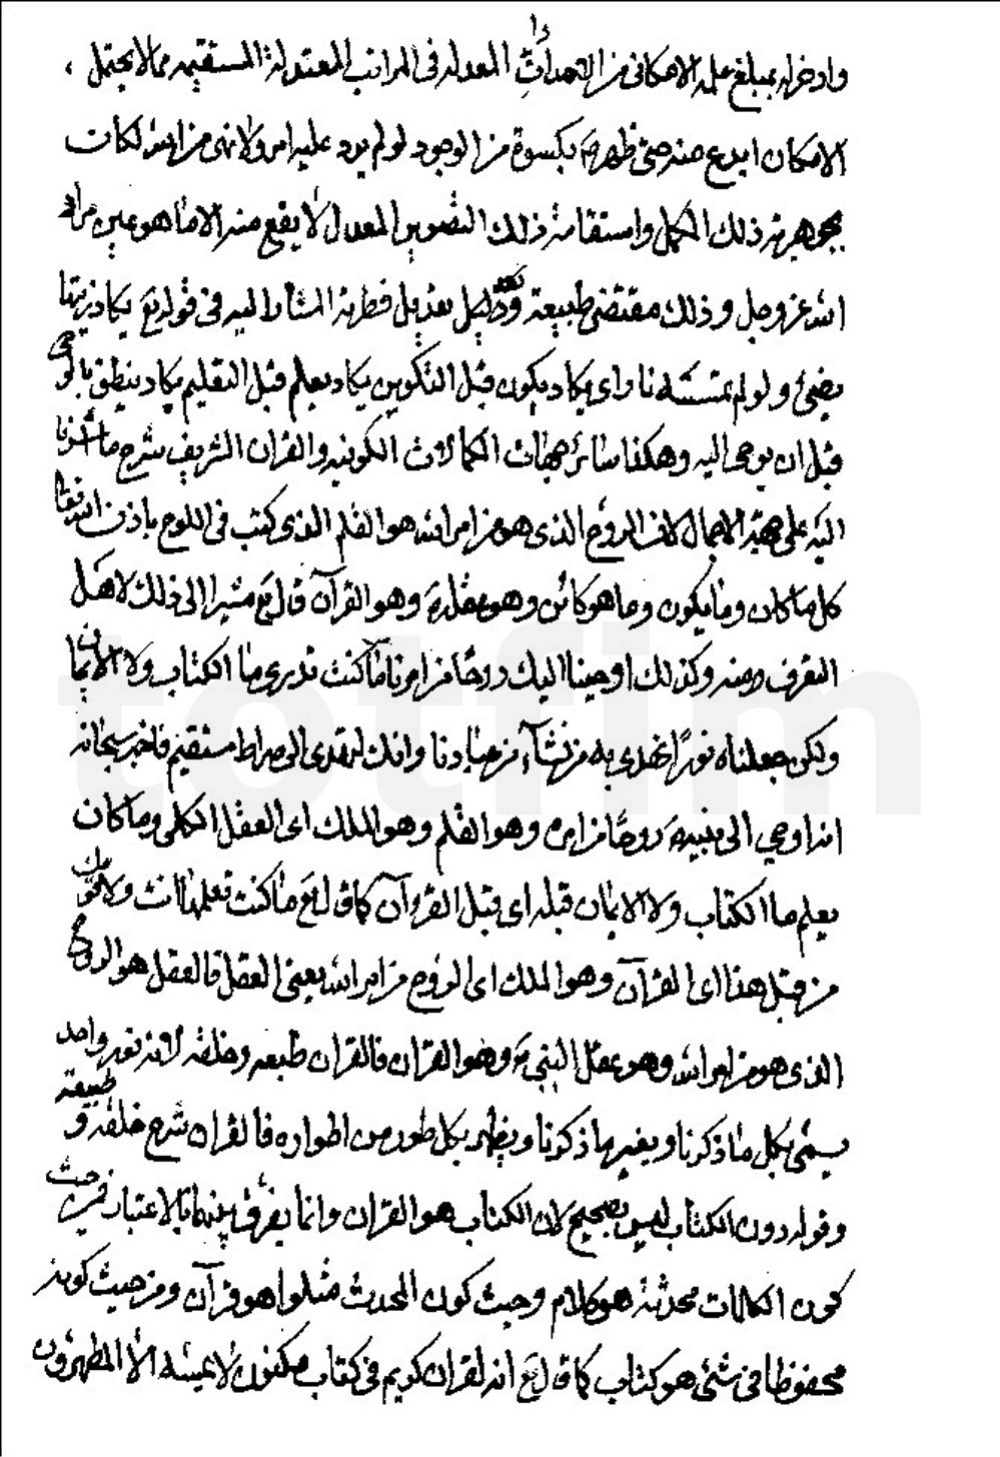 وادخر له بمبلغ علمه الامكانى من التعدلات المعدله فى المراتب المعتدلة المستقيمه مما لا يحتمل
الامكان ابدع منه حتى ظهر بكسوة من الوجود لو لم يرد عليه امر ولا نهى من الله لكانت
بجوهريته ذلك الكمل واستقامة ذلك التصوير المعدل لا يقع منه الا ما هو عين مراد
الله عز وجل وذلك مقتضى طبيعته تعديل فطرته المشار اليه فى قوله تع يكاد زيتها
يضئ ولو لم تمسسه نار اى يكاد يكون قبل التكوين يكاد يعلم قبل التعليم يكاد ينطق بالوحى
قبل ان يوحى اليه وهكذا سائر جهات الكمالات الكونيه والقران الشريف شرح ما اشرنا
اليه على جهة الاجمال لان الروح الذى هو من امر الله هو القلم الذى كتب فى اللوح باذن الله تعا
كل ما كان وما يكون وما هو كائن وهو عقله ص وهو القرآن قال تع مشيرا الى ذلك لاهل
التعرف منه وكذلك اوحينا اليك روحا من امرنا ما كنت تدرى ما الكتاب ولا الايمان
ولكن جعلناه نورًا نهدى به من نشآء من عبادنا وانك لتهدى الى صراط مستقيم فاخبر سبحانه
انه اوحى الى نبيه ص روحًا من امره وهو القلم وهو الملك اى العقل الكلى وما كان
يعلم ما الكتاب ولا الايمان قبله اى قبل القرءان كما قال تع ما كنت تعلمها انت ولا قومك
من قبل هذا اى القرآن وهو الملك اى الروح من امر الله يعنى العقل فالعقل هو الروح
الذى هو من امر الله وهو عقل النبى ص وهو القران فالقران طبعه وخلقه لانه نور واحد
يسمى بكل ما ذكرنا وبغير ما ذكرنا ويظهر بكل طور من اطواره فالقران شرح خلقه و طبيعته
وقوله دون الكتاب ليس بصحيح لان الكتاب هو القران وانما يفرق بينهما بالاعتبار فمن حيث
كون الكلمات محدثة هو كلام وحيث كون المحدث متلوا هو قرآن ومن حيث كونه
محفوظا فى شئ هو كتاب كما قال تع انه لقران كريم فى كتاب مكنون لا يمسه الا المطهرون
totfim